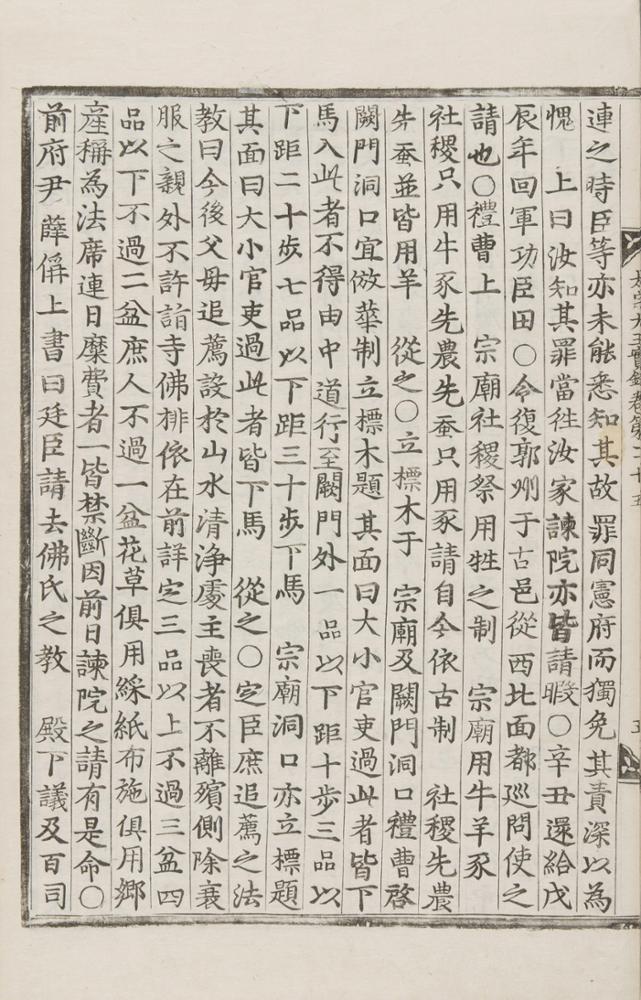 連之時臣等亦未能悉知其故罪同憲府而獨免其責深以為
愧　上曰汝知其罪當徃汝家諫院亦皆請暇○辛丑還給戊
辰年回軍功臣田○令復郭州于古邑從西北面都巡問使之
請也○禮曹上　宗廟社稷祭用牲之制　宗廟用牛羊豕
社稷只用牛豕先農先蚕只用豕請自今依古制　社稷先農
先蚕並皆用羊　從之○立標木于　宗廟及闕門洞口禮曹啓
闕門洞口宜倣華制立標木題其面曰大小官吏過此者皆下
馬入此者不得由中道行至闕門外一品以下距十步三品以
下距二十步七品以下距三十步下馬　宗廟洞口亦立標題
其面曰大小官吏過此者皆下馬　從之○定臣庶追薦之法
教曰今後父母追薦設於山水清淨處主喪者不離殯側除衰
服之親外不許詣寺佛排依在前詳定三品以上不過三盆四
品以下不過二盆庶人不過一盆花草俱用綵紙布施俱用鄉
產稱為法席連日糜費者一皆禁斷因前日諫院之請有是命○
前府尹薛偁上書曰廷臣請去佛氏之教　殿下議及百司